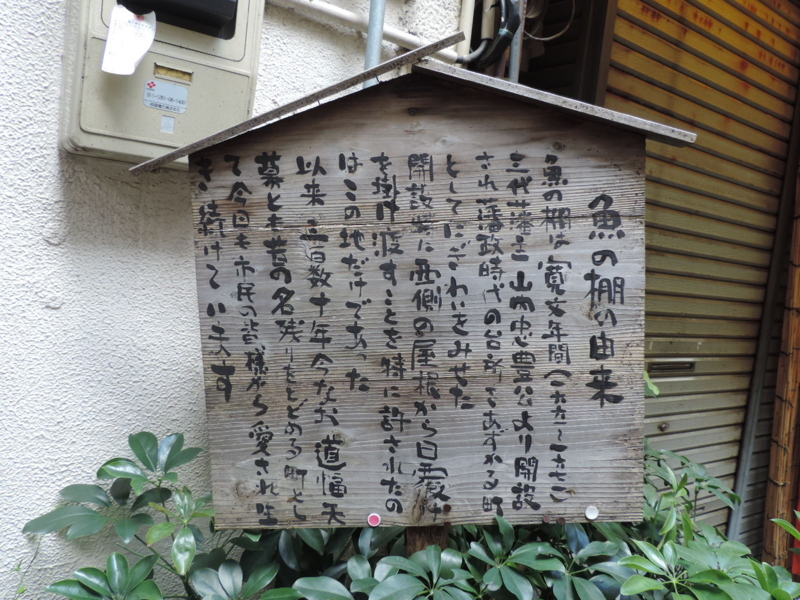 魚の棚の由来
魚の棚は寛文年間(一六六一~一六七二)
三代藩主山内忠豊公より開設
され藩政時代の台所をあずかる町
としてにぎわいをみせた
開設時に西側の屋根から日覆い
を掛け渡すことを特に許されたの
はこの地だけであった
以来三百数十年今なお道幅天
幕とも昔の名残りをとどめる町とし
て今日も市民の皆様から愛され生
き続けています